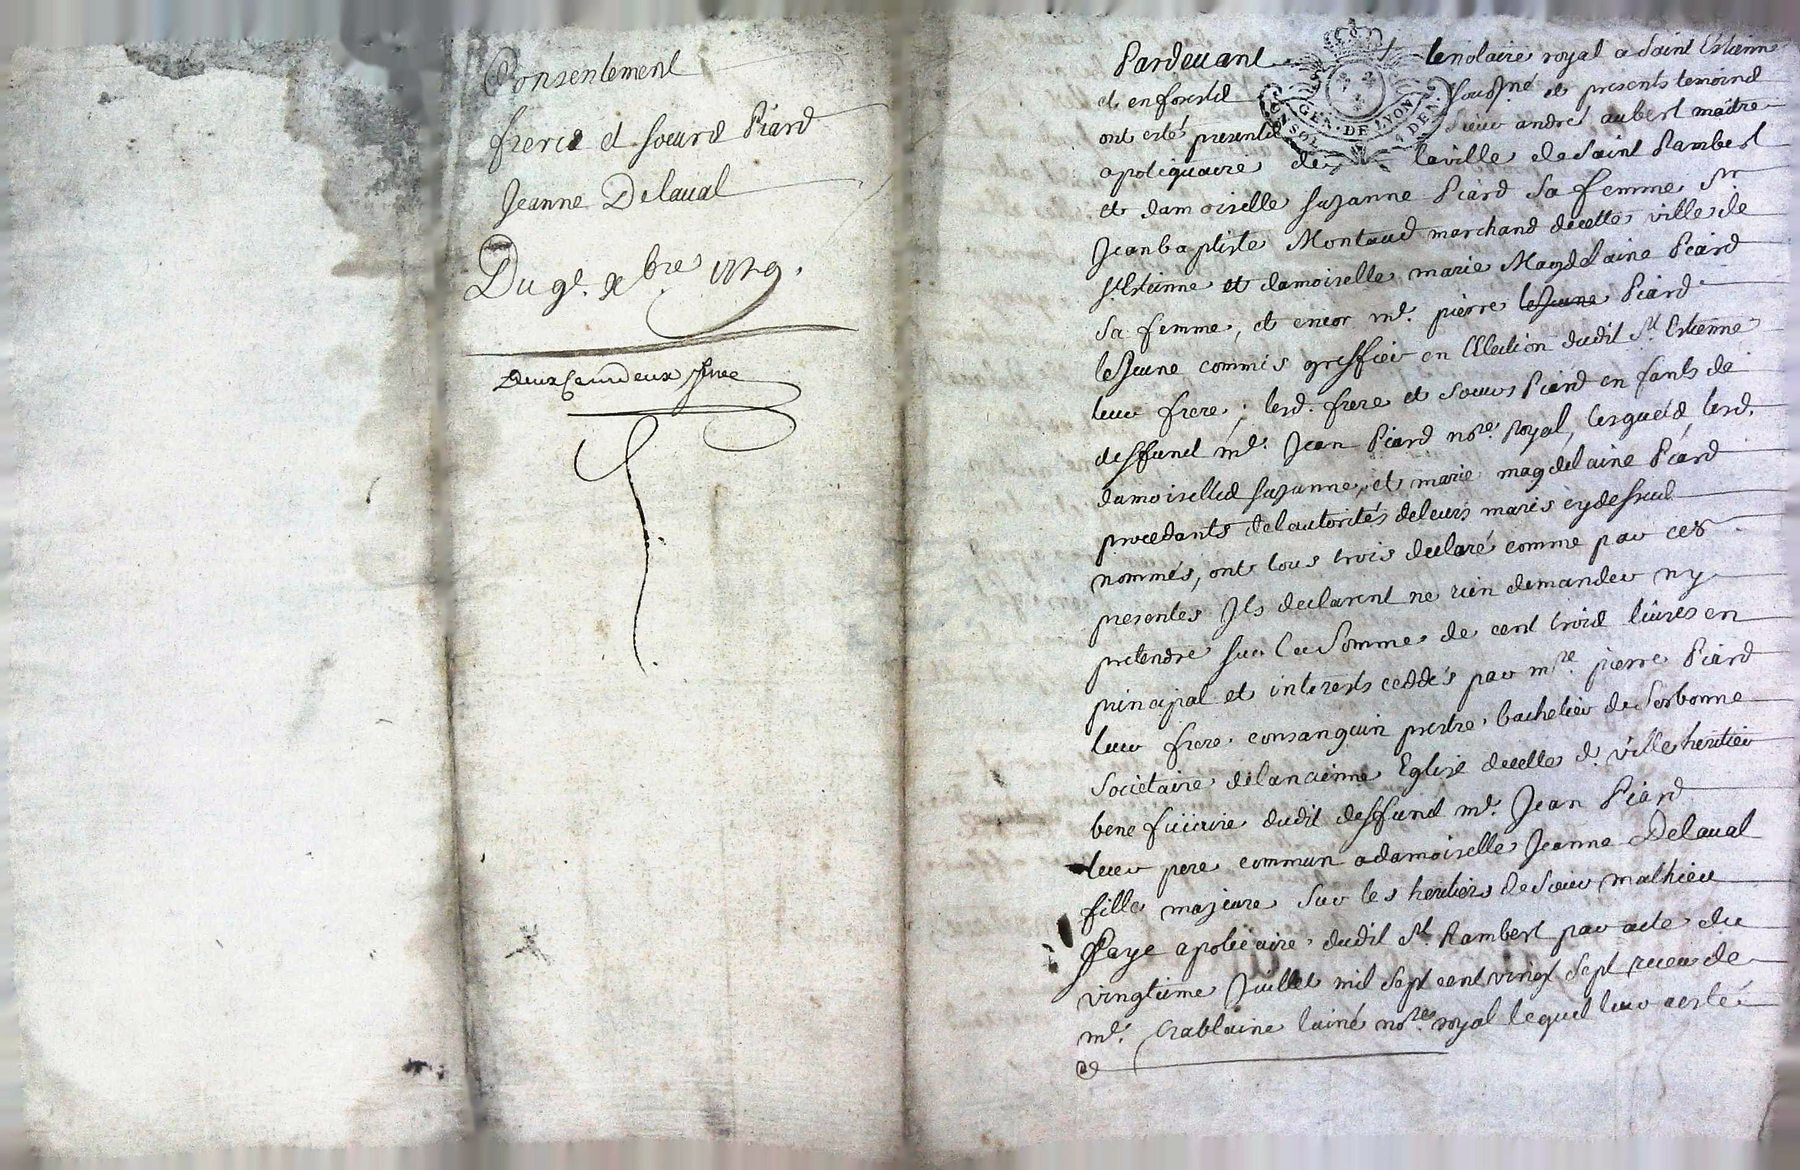 Consentement
freres et soeurs Piard
Jeanne Delaval
Du 9e. xbre 1729.
Pardevant le notaire royal a Saint Estienne
et en forestz soussigné et presents temoins
ont estés presents sieur andré aubert maitre
apotiquaire de la ville de Saint Rambert
et damoiselle suzanne Piard sa femme sr
Jean baptiste Montaud marchand de cette ville de
st. Estienne et damoiselle marie Magdelaine Piard
sa femme, et encor me. pierre le Jeune Piard
le Jeune commis greffier en l'Election dudit st Estienne
leur frere; lesd. frere et soeurs Piard enfants de
deffunct me. Jean Piard nore. Royal, lesquels, lesd.
damoiselles suzanne, et marie magdelaine Piard
procedants de l'autorités de leurs maris cy dessus
nommés, ont tous trois declaré comme par ces
presentes Ils declarent ne rien demander ny
pretendre sur la somme de cent trois livres en
principal et interests ceddés par mre. pierre Piard
leur frere consanguin prestre bachelier de Sorbonne
societaire de l'ancienne Eglise de cette d. ville heritier
beneficiaire dudit deffunct me. Jean Piard
leur pere commun a damoiselle Jeanne Delaval
fille majeure sur les heritiers de sieur mathieu
Faye apoticaire dudit st. Rambert par acte du
vingtieme Juillet mil sept cent vingt sept receu de
me. Crablaine l'ainé nores. royal lequel leur a esté